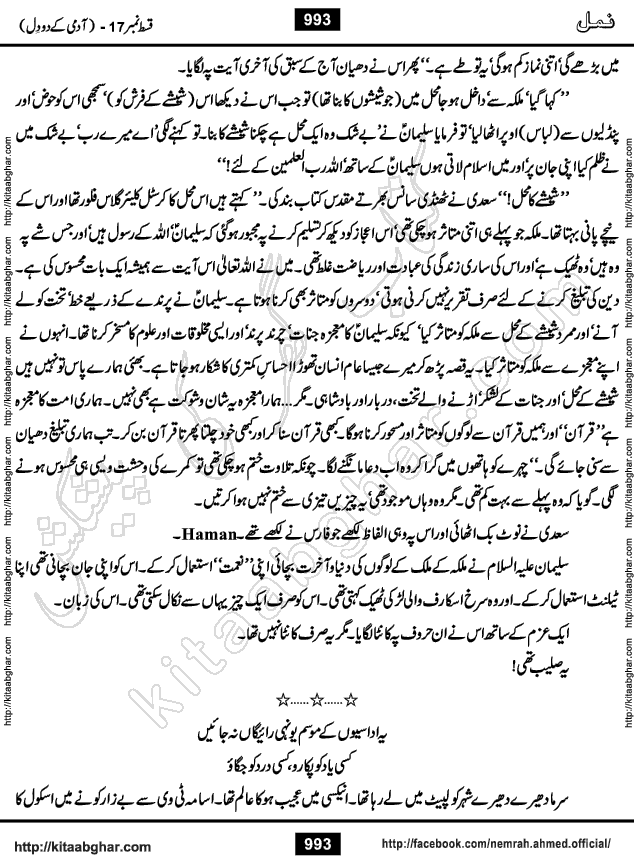 قسط نمبر 17 - (آدمی کے دو دل)
993
نمل
میں بڑھے گی' اتنی نماز کم ہوگی' یہ تو طے ہے۔'' پھر اس نے دھیان آج کے سبق کی آخری آیت پہ لگایا۔
''کہا گیا' ملکہ سے' داخل ہو جا محل میں (جو شیشوں کا بنا تھا) تو جب اس نے دیکھا اس (شیشے کے فرش کو)' سمجھی اس کو حوض' اور
پنڈلیوں سے (لباس) اوپر اٹھا لیا' تو فرمایا سلیمانؑ نے' بے شک وہ ایک محل ہے چکنا شیشے کا بنا۔ تو کہنے لگی' اے میرے رب' بے شک میں
نے ظلم کیا اپنی جان پر' اور میں اسلام لاتی ہوں سلیمانؑ کے ساتھ' اللہ رب العلمین کے لئے!''
''شیشے کا محل!'' سعدی نے ٹھنڈی سانس بھرتے مقدس کتاب بند کی۔ ''کہتے ہیں اس محل کا کرسٹل کلیئر گلاس فلور تھا اور اس کے
نیچے پانی بہتا تھا۔ ملکہ جو پہلے ہی اتنی متاثر ہو چکی تھی' اس اعجاز کو دیکھ کر تسلیم کرنے پہ مجبور ہو گئی کہ سلیمانؑ اللہ کے رسول ہیں' اور جس شے پہ
وہ ہیں' وہ ٹھیک ہے' اور اس کی ساری زندگی کی عبادت اور ریاضت غلط تھی۔ میں نے اللہ تعالیٰ اس آیت سے ہمیشہ ایک بات محسوس کی ہے۔
دین کی تبلیغ کرنے کے لئے صرف تقریر نہیں کرنی ہوتی' دوسروں کو متاثر بھی کرنا ہوتا ہے۔ سلیمانؑ نے پرندے کے ذریعے خط' تخت کو لے
آنے' اور ممرد شیشے کے محل سے ملکہ کو متاثر کیا' کیونکہ سلیمانؑ کا معجزہ جنات' چرند پرند' اور ایسی مخلوقات اور علوم کا مسخر کرنا تھا۔ انہوں نے
اپنے معجزے سے ملکہ کو متاثر کیا۔ یہ قصہ پڑھ کر میرے جیسا عام انسان تھوڑا احساسِ کمتری کا شکار ہو جاتا ہے۔ بھئی ہمارے پاس تو نہیں ہیں
شیشے کے محل' اور جنات کے لشکر' اڑنے والے تخت' دربار اور بادشاہی۔ مگر... ہمارا معجزہ یہ شان و شوکت ہے بھی نہیں۔ ہماری امت کا معجزہ
ہے ''قرآن'' اور ہمیں قرآن سے لوگوں کو متاثر اور مسحور کرنا ہوگا۔ کبھی قرآن سنا کر اور کبھی خود چلتا پھرتا قرآن بن کر۔ تب ہماری تبلیغ دھیان
سے سنی جائے گی۔'' چہرے کو ہاتھوں میں گرا کر وہ اب دعا مانگنے لگا۔ چونکہ تلاوت ختم ہو چکی تھی' تو کمرے کی وحشت ویسی ہی محسوس ہونے
لگی۔ گو یا کہ وہ پہلے سے بہت کم تھی۔ مگر وہ وہاں موجود تھی' یہ چیزیں تیزی سے ختم نہیں ہوا کرتیں۔
سعدی نے نوٹ بک اٹھائی اور اس پہ وہی الفاظ لکھے جو فارس نے لکھے تھے۔ Haman۔
سلیمان علیہ السلام نے ملکہ کے ملک کے لوگوں کی دنیا و آخرت بچائی اپنی ''نعمت'' استعمال کر کے۔ اس کو اپنی جان بچانی تھی اپنا
ٹیلنٹ استعمال کر کے۔ اور وہ سرخ اسکارف والی لڑکی ٹھیک کہتی تھی۔ اس کو صرف ایک چیز یہاں سے نکال سکتی تھی۔ اس کی زبان۔
ایک عزم کے ساتھ اس نے ان حروف پہ کانٹا لگایا۔ مگر یہ صرف کانٹا نہیں تھا۔
یہ صلیب تھی!
☆......☆......☆
یہ اداسیوں کے موسم یونہی رائیگاں نہ جائیں
کسی یاد کو پکارو، کسی درد کو جگاؤ
سرما دھیرے دھیرے شہر کو لپیٹ میں لے رہا تھا۔ انیکسی میں عجیب ہو کا عالم تھا۔ اسامہ ٹی وی سے بے زار کونے میں اسکول کا
http://kitaabghar.com
993
http://facebook.com/nemrah.ahmed.official/
http://kitaabghar.com http://kitaabghar.com http://kitaabghar.com http://kitaabghar.com http://kitaabghar.com http://kitaabghar.com
http://kitaabghar.com http://kitaabghar.com http://kitaabghar.com http://kitaabghar.com http://kitaabghar.com http://kitaabghar.com
کتاب گھر کی پیشکش
kitaabghar.com